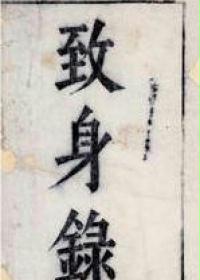 致身錄